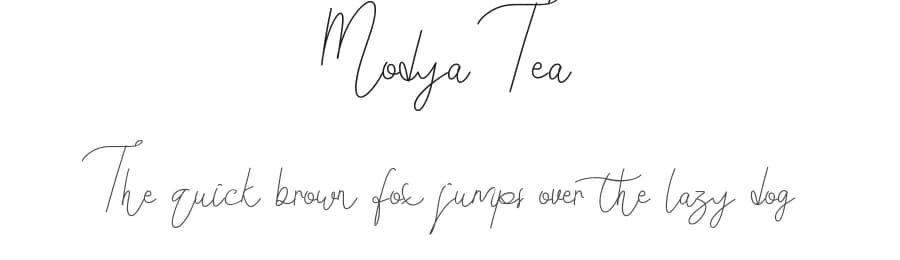 Modya Tea
The quick brown fox jumps over the lazy dog